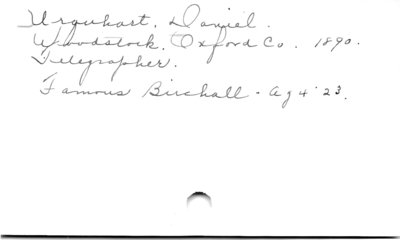 Urquhart, Daniel.
Woodstock, Oxford Co. 1890.
Telegrapher.
Famous Birchall - Ag 4 '23.